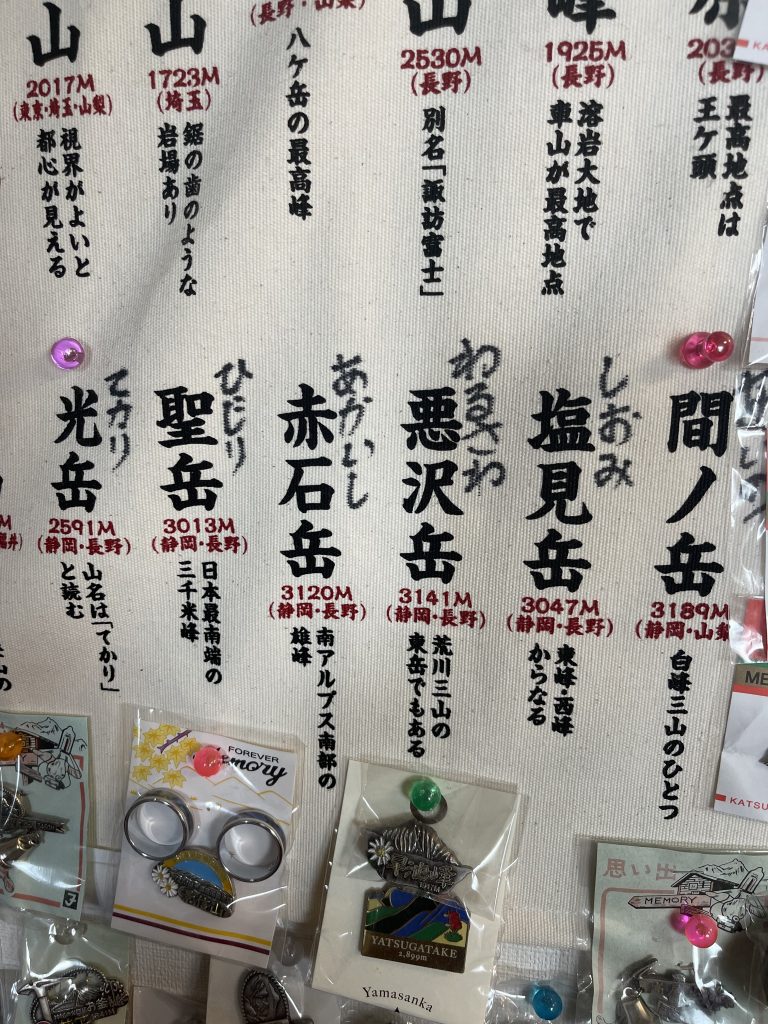 山
2017M
(東京・埼玉・山梨)
視界がよいと
都心が見える
山
1723M
(埼玉)
鋸の歯のような
岩場あり
(長野・山梨)
八ケ岳の最高峰
山
2530M
(長野)
別名「諏訪富士」
峰
1925M
(長野)
溶岩大地で
車山が最高地点
(長野)
最高地点は
王ケ頭
間ノ岳
3189M
(静岡・山梨)
白峰三山のひとつ
塩見岳
しおみ
3047M
(静岡・長野)
東峰・西峰
からなる
悪沢岳
わるさわ
3141M
(静岡・長野)
荒川三山の
東岳でもある
赤石岳
あかいし
3120M
(静岡・長野)
南アルプス南部の
雄峰
聖岳
ひじり
3013M
(静岡・長野)
日本最南端の
三千米峰
光岳
てかり
2591M
(静岡・長野)
山名は「てかり」
と読む
FOREVER
Memory
YATSUGATAKE
2,899m
Yamasanka
思い出
MEMORY
KATSU